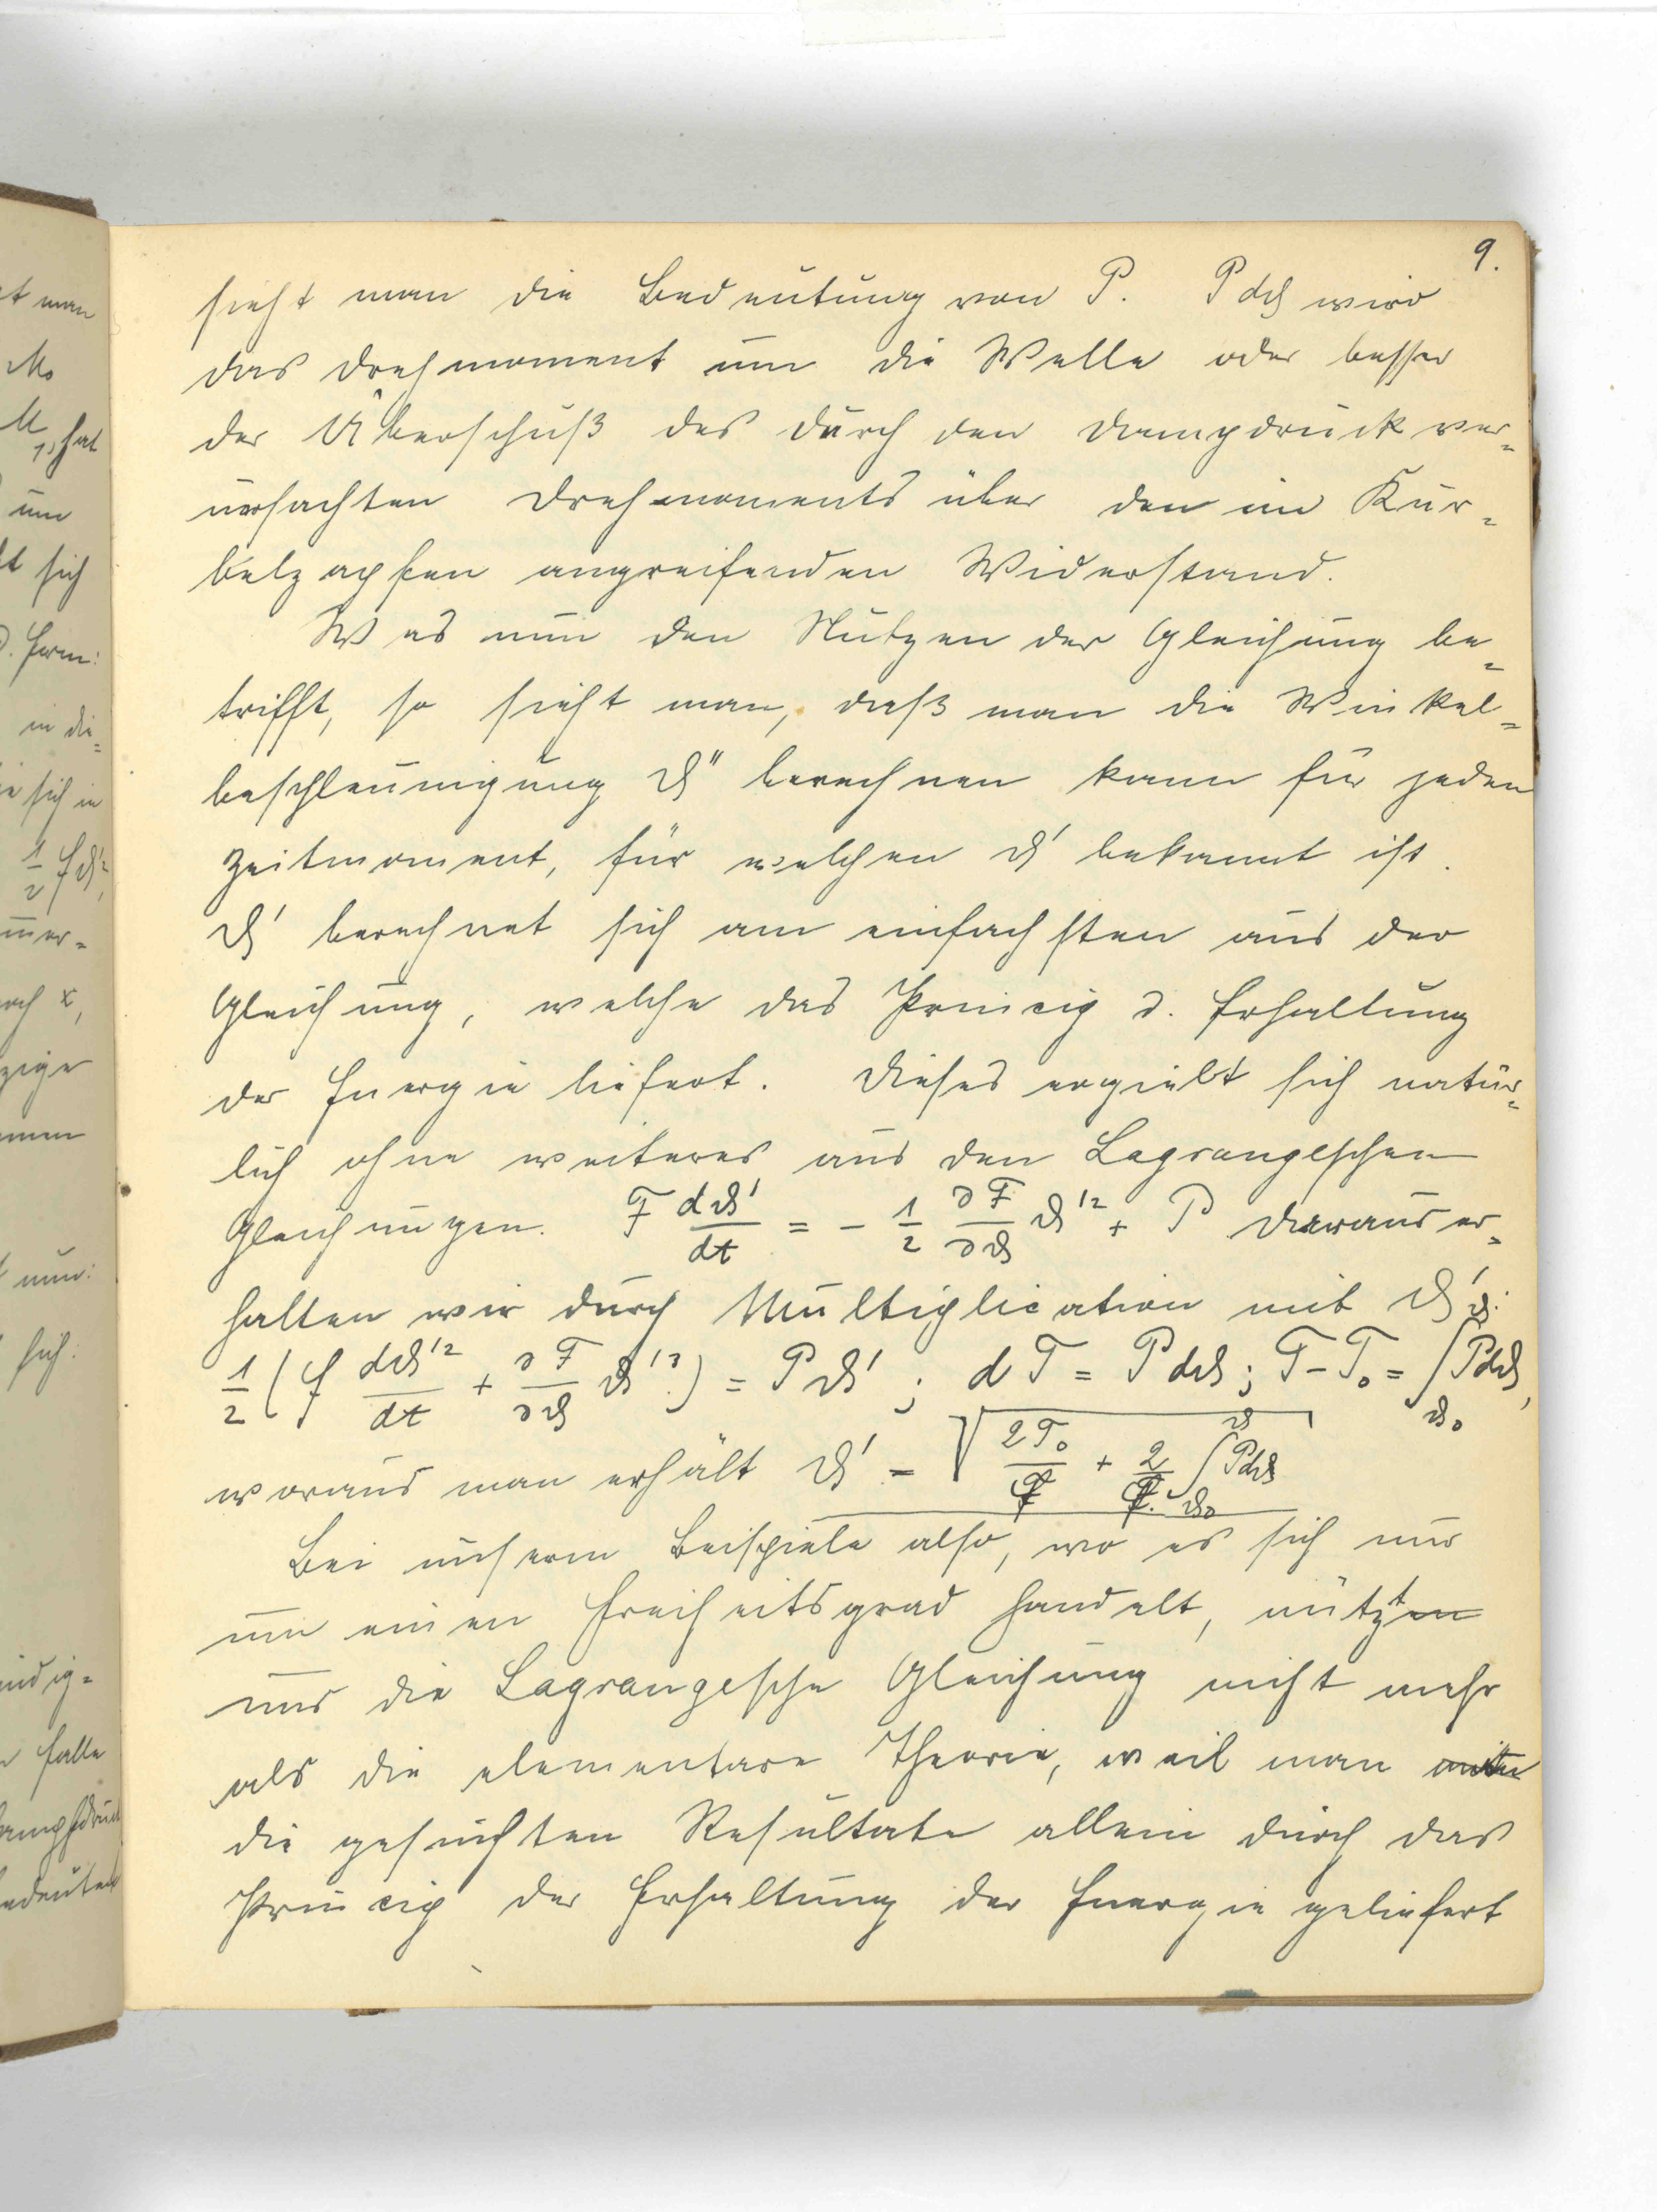 9.
sieht man die Bedeutung von P. P dϑ wird
das Drehmoment um die Welle oder besser
der Überschuß des durch den Dampdruck ver-
ursachten Drehmoments über den im Kur-
belzapfen angreifenden Widerstand.
Was nun den Nutzen der Gleichung be-
trifft, so sieht man, daß man die Winkel-
beschleunigung ϑ'' berechnen kann für jeden
Zeitmoment, für welchen ϑ' bekannt ist.
ϑ' berechnet sich am einfachsten aus der
Gleichung, welche das Princip d. Erhaltung
der Energie liefert. Dieses ergiebt sich natür-
lich ohne weiteres aus den Lagrangeschen
Gleichungen. F dϑ'/dt = - 1/2 ∂F/∂ϑ ϑ'² + P Daraus er-
halten wir durch Multiplication mit ϑ':
1/2 (f dϑ'²/dt + ∂F/∂ϑ ϑ'³) = Pϑ' ; dT = P dϑ; T-T₀ = ∫Pdϑ,
ϑ ϑ₀
woraus man erhält ϑ' = √(2T₀/F + 2/F ∫Pdϑ)
ϑ ϑ₀
Bei unserm Beispiele also, wo es sich nur
um einen Freiheitsgrad handelt, nützt
uns die Lagrangesche Gleichung nicht mehr
als die elementare Theorie, weil man
die gesuchten Resultate allein durch das
Princip der Erhaltung der Energie geliefert
et man
M₀
M₁, hat
um
lt sich
d. Form:
in die-
sich in
1/2 fϑ'²,
mer-
nach x,
nun:
sich:
ändig-
Falle
ampfdruck
edeuten